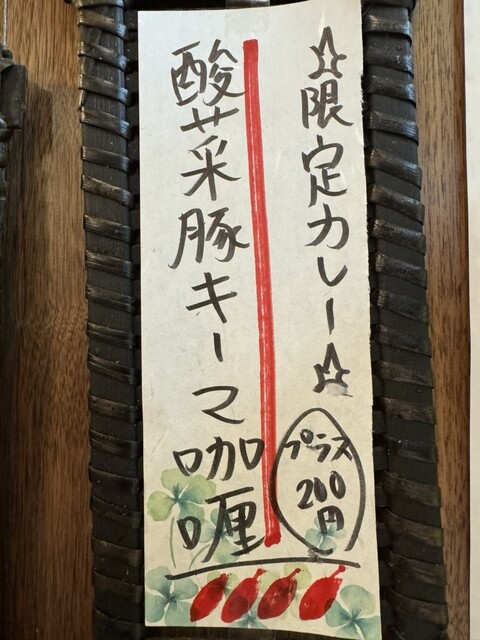 ☆限定カレー☆
プラス
200
円
酸菜豚キーマ咖喱